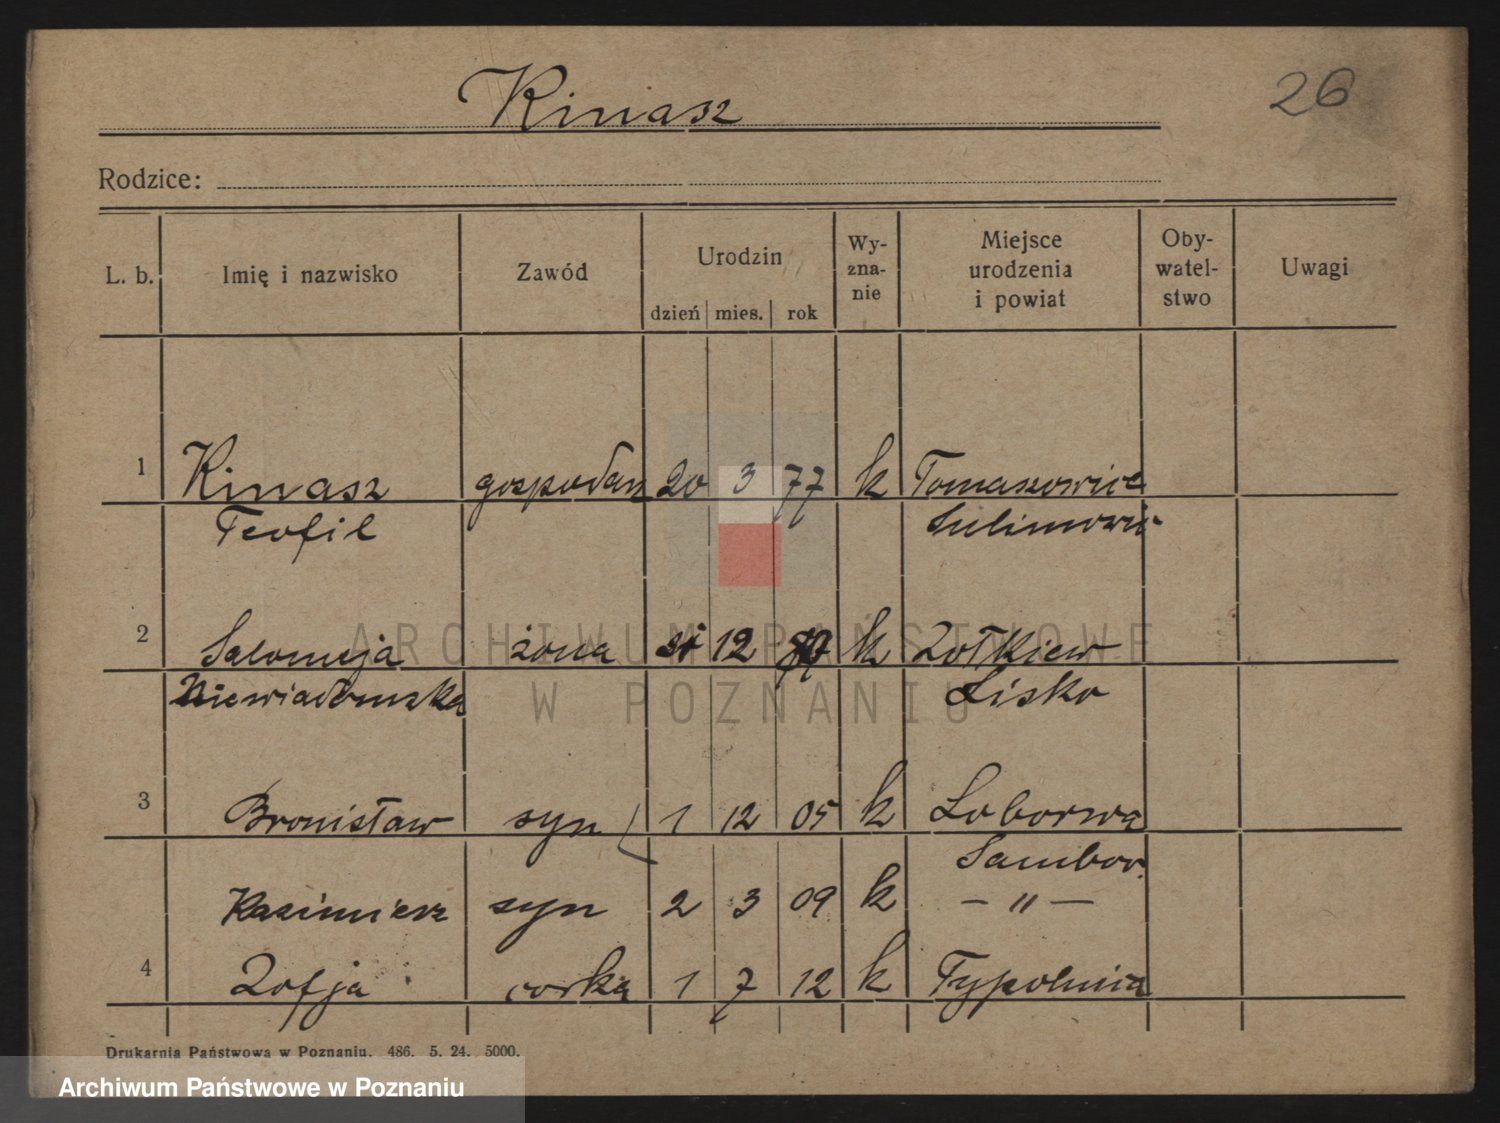 Kinasz
26
Rodzice:
L. b. Imię i nazwisko Zawód Urodzin dzień mies. rok Wy- zna- nie Miejsce urodzenia i powiat Oby- watel- stwo Uwagi
1 Kinasz gospodarz 20 3 77 k Tomaszowice
Teofil
2 Salomeja żona 12 k Żołkiew
Niewiadomska Lisko
3 Bronisław syn 1 12 05 k
Sambor.
Kazimierz syn 2 3 09 k — " —
4 Zofja corka 1 7 12 k
Drukarnia Państwowa w Poznaniu. 486. 5. 24. 5000.
ARCHIWUM PAŃSTWOWE
W POZNANIU
Archiwum Państwowe w Poznaniu